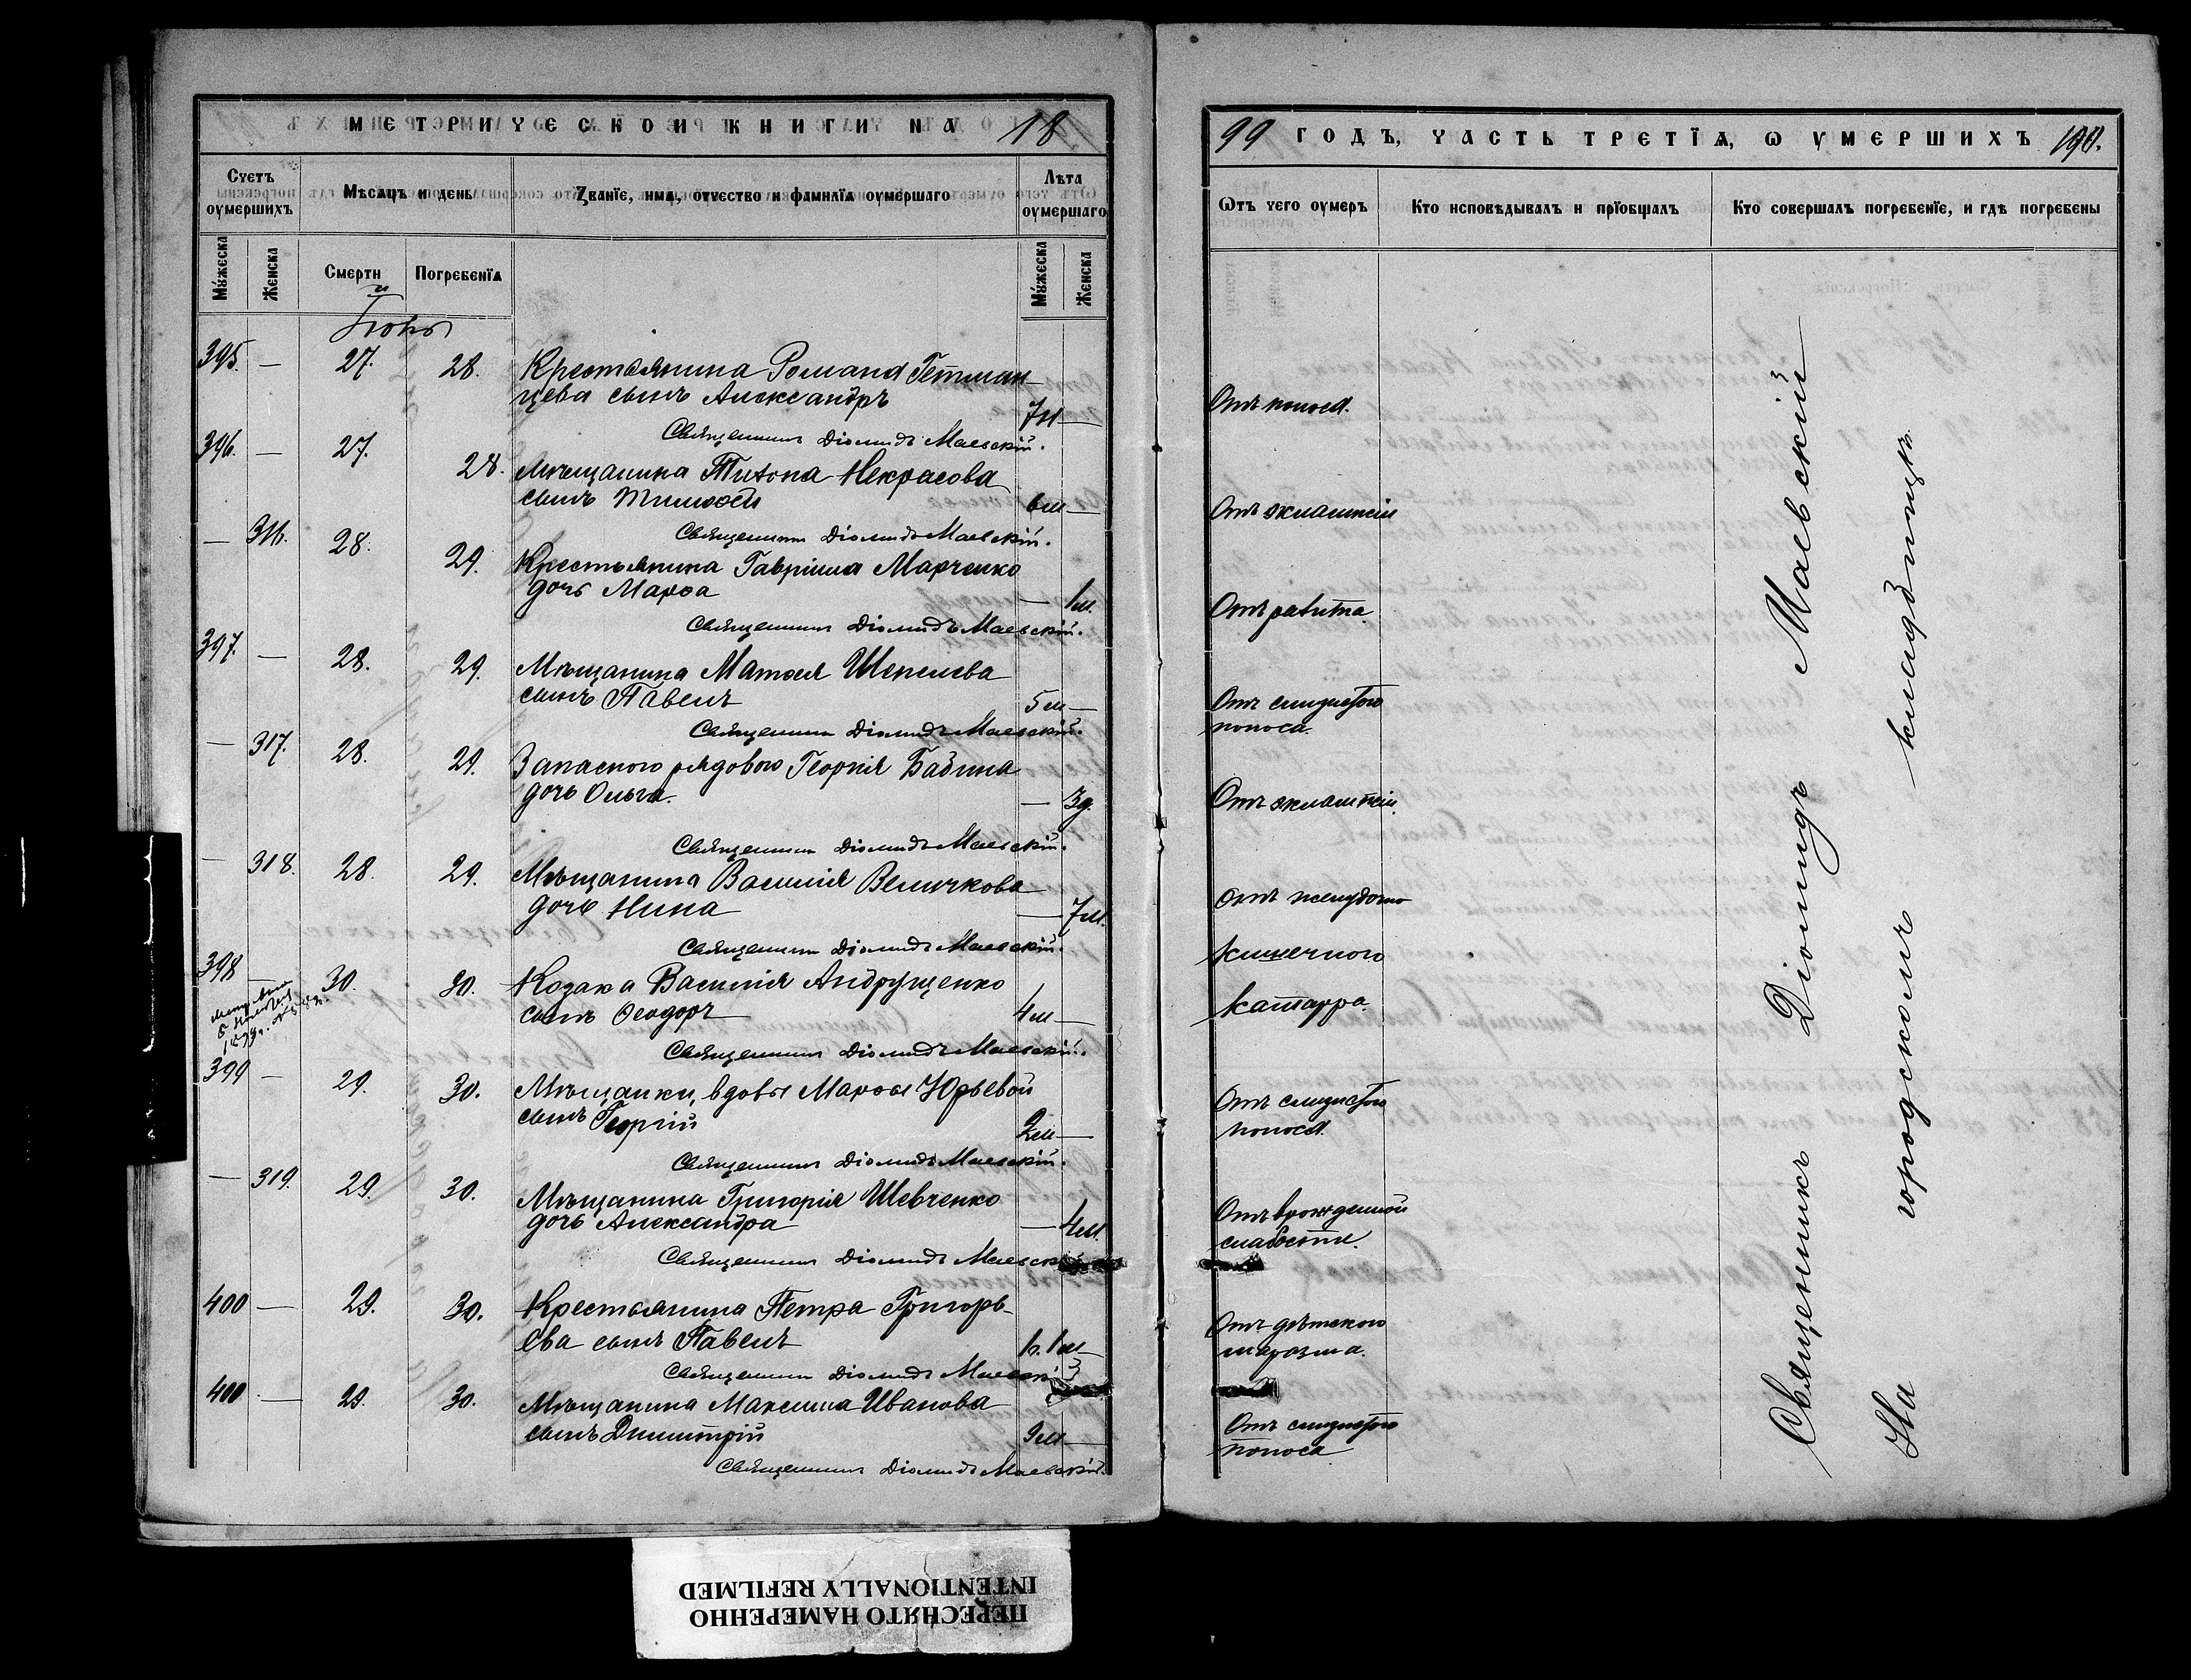 МЕТРИЧЕСКОЙ КНИГИ НА 18
Счетъ оумершихъ
Мѣсяцъ и день
Званїе, имя, отчество и фамилїя оумершаго
Лѣта оумершаго
Мꙋжеска
Женска
Смерти
Погребенїя
Мꙋжеска
Женска
395. — 27. 28. Крестьянина Романа Гетман-
цева сынъ Александръ 7м —
Священникъ Діомидъ Маевскій.
396. — 27. 28. Мѣщанина Тихона Некрасова
сынъ Тимоѳей 6м —
Священникъ Діомидъ Маевскій.
— 316. 28. 29. Крестьянина Гавріила Марченко
дочь Марѳа — 1м.
Священникъ Діомидъ Маевскій.
397. — 28. 29. Мѣщанина Матѳея Шепелева
сынъ Павелъ 5м —
Священникъ Діомидъ Маевскій.
— 317. 28. 29. Запасного рядового Георгія Бабина
дочь Ольга. — 3д.
Священникъ Діомидъ Маевскій.
— 318. 28. 29. Мѣщанина Василія Величкова
дочь Нина — 7м.
Священникъ Діомидъ Маевскій.
398 — 30. 30. Козака Василія Андрущенко
сынъ Ѳеодоръ 4м —
Священникъ Діомидъ Маевскій.
399 — 29. 30. Мѣщанки, вдовы Марѳы Юрьевой
сынъ Георгій 2м —
Священникъ Діомидъ Маевскій.
— 319. 29. 30. Мѣщанина Григорія Шевченко
дочь Александра — 4м.
Священникъ Діомидъ Маевскій
400 — 29. 30. Крестьянина Петра Григорь-
ева сынъ Павелъ 1г. 1м —
Священникъ Діомидъ Маевскій
400 — 29. 30. Мѣщанина Максима Иванова
сынъ Димитрій 9м —
Священникъ Діомидъ Маевскій.
99 ГОДЪ, ЧАСТЬ ТРЕТЇЯ, Ѡ УМЕРШИХЪ
Ѿтъ чего оумеръ
Кто исповѣдывалъ и прїобщалъ
Кто совершалъ погребенїе, и гдѣ погребены
Отъ поноса.
Отъ эклампсіи
Отъ рахита.
Отъ слизистого
поноса.
Отъ эклампсіи.
Отъ желудочно
кишечного
катарра.
Отъ слизистого
поноса.
Отъ врожденной
слабости.
Отъ дѣтского
маразма.
Отъ слизистого
поноса
Священникъ Діомидъ Маевскій
На городскомъ кладбищѣ.
ПЕРЕСНЯТО НАМЕРЕННО
INTENTIONALLY REFILMED